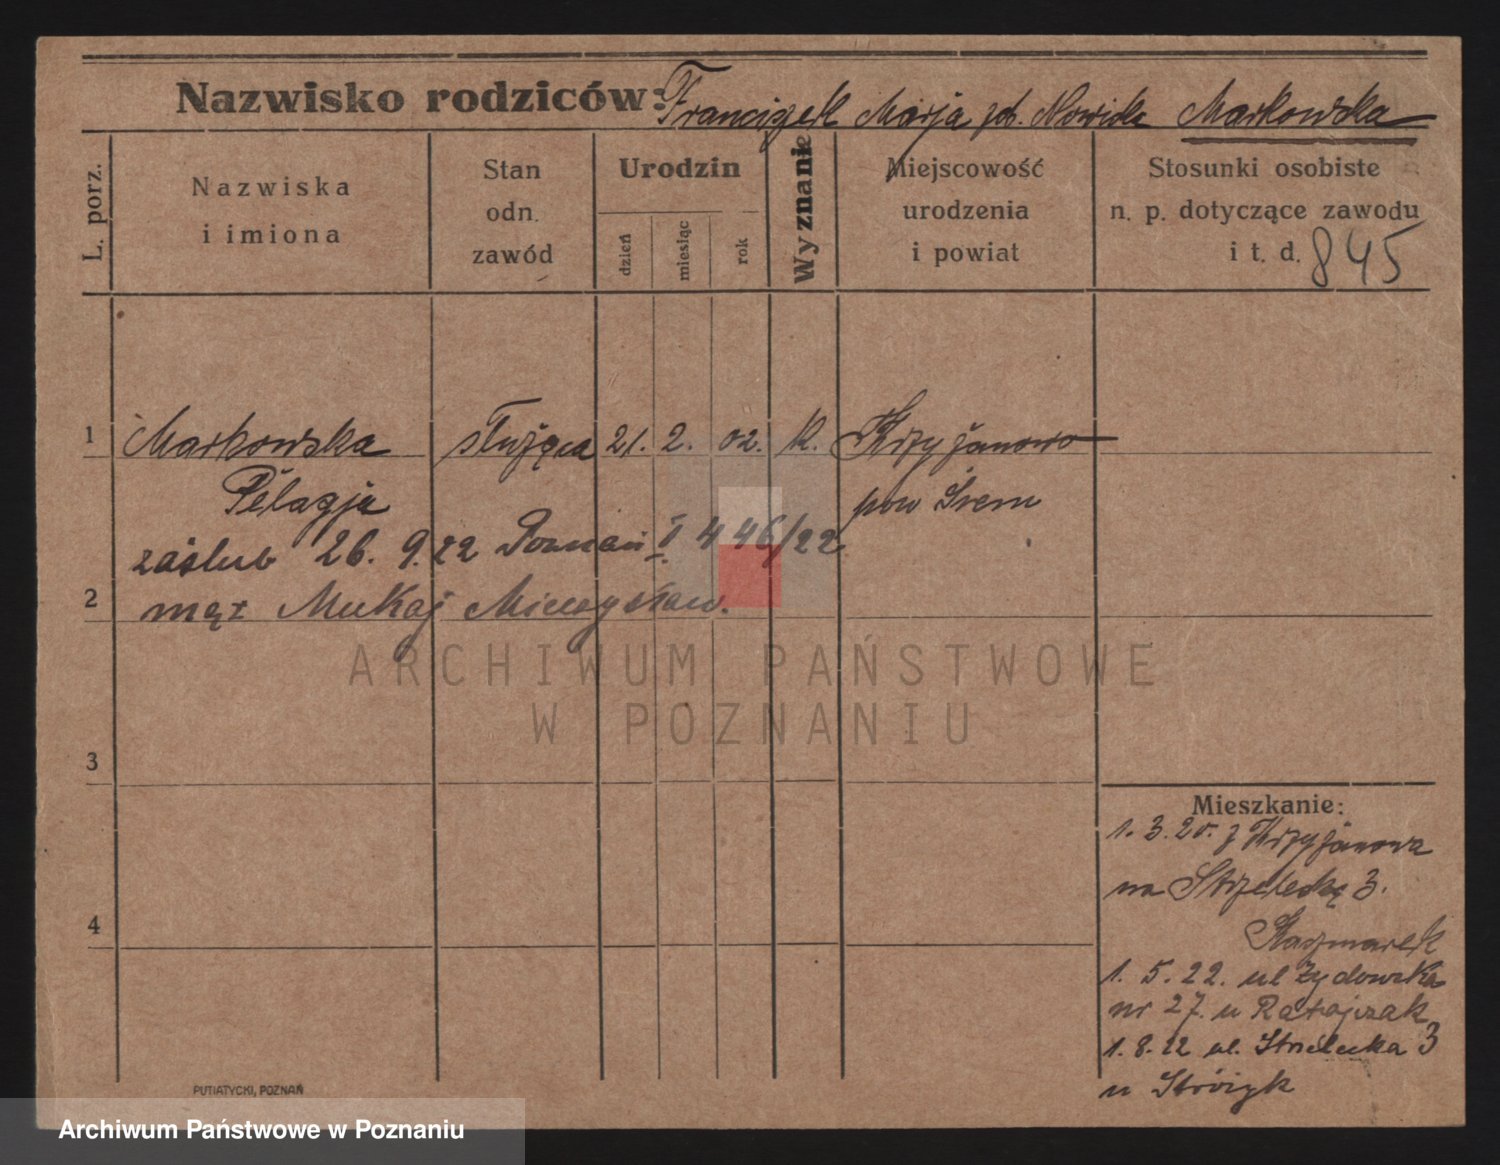 Nazwisko rodziców: Franciszek Marja zd. Nowicka Markowska
L. porz.
Nazwiska
i imiona
Stan
odn.
zawód
Urodzin
dzień
miesiąc
rok
Wyznanie
Miejscowość
urodzenia
i powiat
Stosunki osobiste
n. p. dotyczące zawodu
i t. d. 845
1 Markowska służąca 21. 2. 02. k. Krzyżanowo
Pelagja pow Śrem
zaślub 26. 9. 22 Poznań II 446/22
2 mąż Mukaj Mieczysław.
3
4
Mieszkanie:
1. 3. 20. z Krzyżanowa
na Strzelecką 3.
Kaczmarek
1. 5. 22. ul Żydowska
nr 27. u Ratajczak
1. 8. 22 ul. Strzelecka 3
u Stróżyk
PUTIATYCKI, POZNAŃ
ARCHIWUM PAŃSTWOWE
W POZNANIU
Archiwum Państwowe w Poznaniu